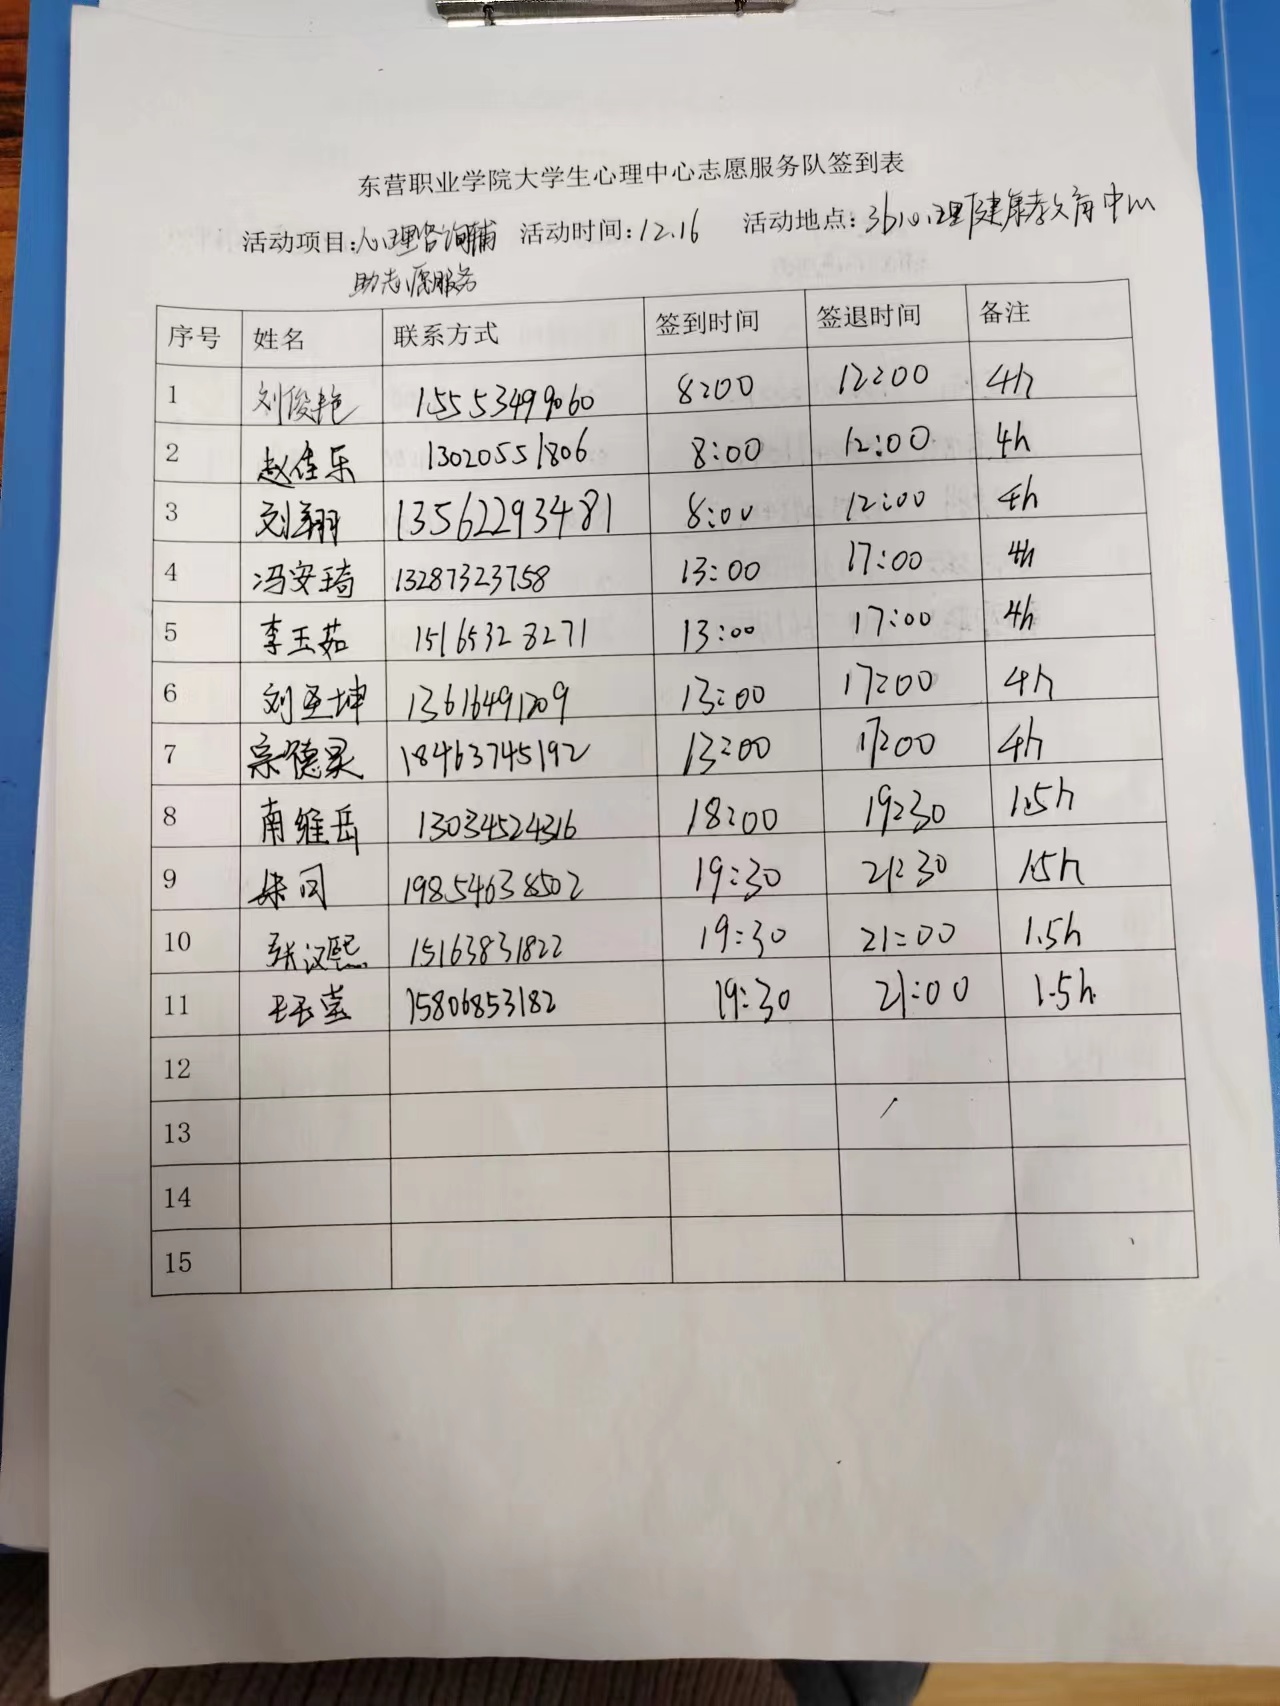 东营职业学院大学生心理中心志愿服务队签到表
活动项目:心理咨询辅 活动时间:12.16 活动地点:361心理健康教育中心
助志愿服务
序号 姓名 联系方式 签到时间 签退时间 备注
1 刘俊艳 15553499060 8:00 12:00 4h
2 赵佳乐 13020551806 8:00 12:00 4h
3 刘翔 13562293481 8:00 12:00 4h
4 冯安琦 13287323758 13:00 17:00 4h
5 李玉茹 15165328271 13:00 17:00 4h
6 刘圣坤 13616491209 13:00 17:00 4h
7 宗德灵 18463745192 13:00 17:00 4h
8 南维岳 13034524316 18:00 19:30 1.5h
9 19854638502 19:30 21:30 1.5h
10 张汉熙 15163831822 19:30 21:00 1.5h
11 15806853182 19:30 21:00 1.5h
12
13
14
15